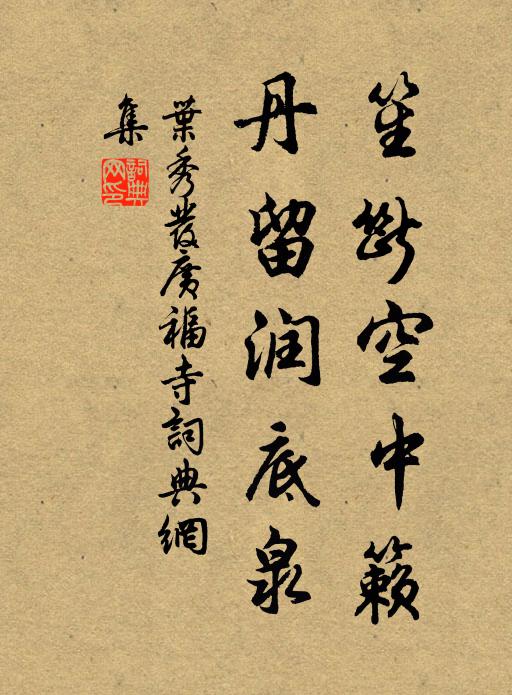 笙断空中籟
丹留润底泉
葉秀發廣福寺詞典網
集
詞典
网印